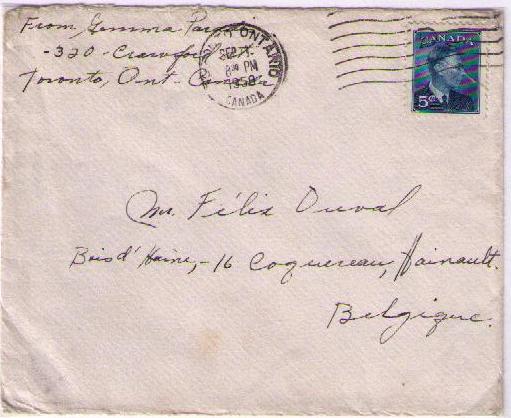 From, Gemma
-320-Crawford
Toronto, Ont. Canada
TORONTO ONTARIO
SEP
8 30 PM
1950
CANADA
CANADA
5¢
Mr. Félix Duval
Bois d'Haine,-16 Coquereau, Hainault.
Belgique.